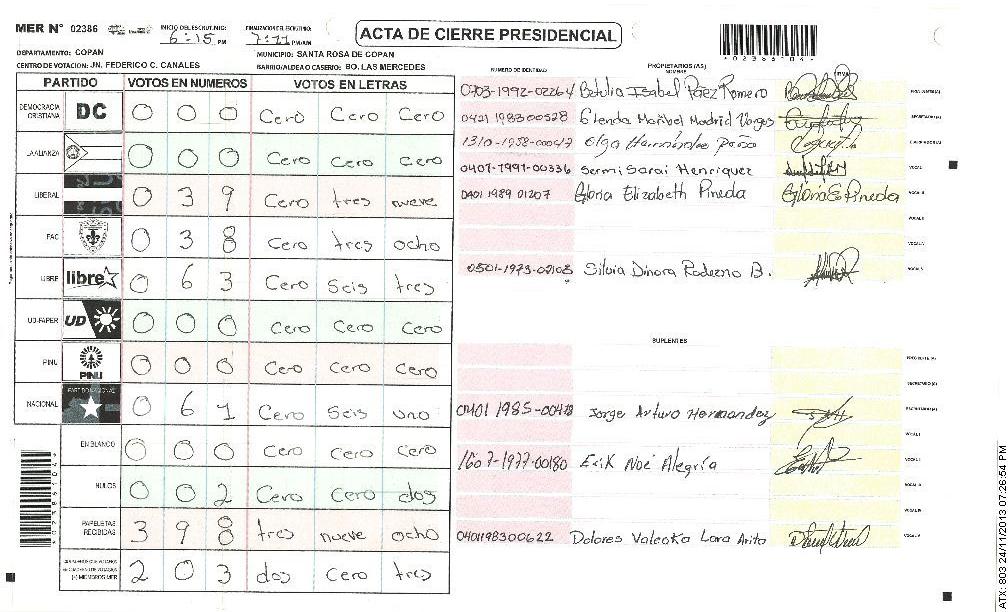 MER N° 02386
INICIO DEL ESCRUTINIO: 6:15 PM
FINALIZACION DEL ESCRUTINIO: 7:11 PM/AM
ACTA DE CIERRE PRESIDENCIAL
DEPARTAMENTO: COPAN
MUNICIPIO: SANTA ROSA DE COPAN
CENTRO DE VOTACION: JN. FEDERICO C. CANALES
BARRIO/ALDEA O CASERIO: BO. LAS MERCEDES
PARTIDO VOTOS EN NUMEROS VOTOS EN LETRAS
DEMOCRACIA CRISTIANA DC 0 0 0 Cero Cero Cero
LA ALIANZA 0 0 0 Cero cero cero
LIBERAL 0 3 9 Cero tres nueve
FAC 0 3 8 Cero tres ocho
LIBRE libre 0 6 3 Cero Seis tres
UD-FAPER UD 0 0 0 Cero Cero Cero
PINU PINU 0 0 0 Cero Cero cero
NACIONAL PARTIDO NACIONAL 0 6 1 Cero Seis uno
EN BLANCO 0 0 0 Cero Cero Cero
NULOS 0 0 2 Cero Cero dos
PAPELETAS RECIBIDAS 3 9 8 tres nueve ocho
(+) MIEMBROS MER 2 0 3 dos Cero tres
NUMERO DE IDENTIDAD
PROPIETARIOS (AS)
NOMBRE
FIRMA
0703-1992-02264 Betulia Isabel Paez Romero
0421 1983 00528 Glenda Maribel Madrid Vargas
1310-1958-00047 Elga Hernández
0407-1991-00336 Sermi Sarai Henriquez
0401 1989 01207 Gloria Elizabeth Pineda Gloria E Pineda
0501-1973-02108 Silvia Dinora Rodezno B.
SUPLENTES
0401 1985-00478 Jorge Arturo Hernandez
1607-1977-00180 Erik Noé Alegría
0401198300622 Dolores Valeska Lara Arita
*02386104*
ATX: 803 24/11/2013 07:26:54 PM